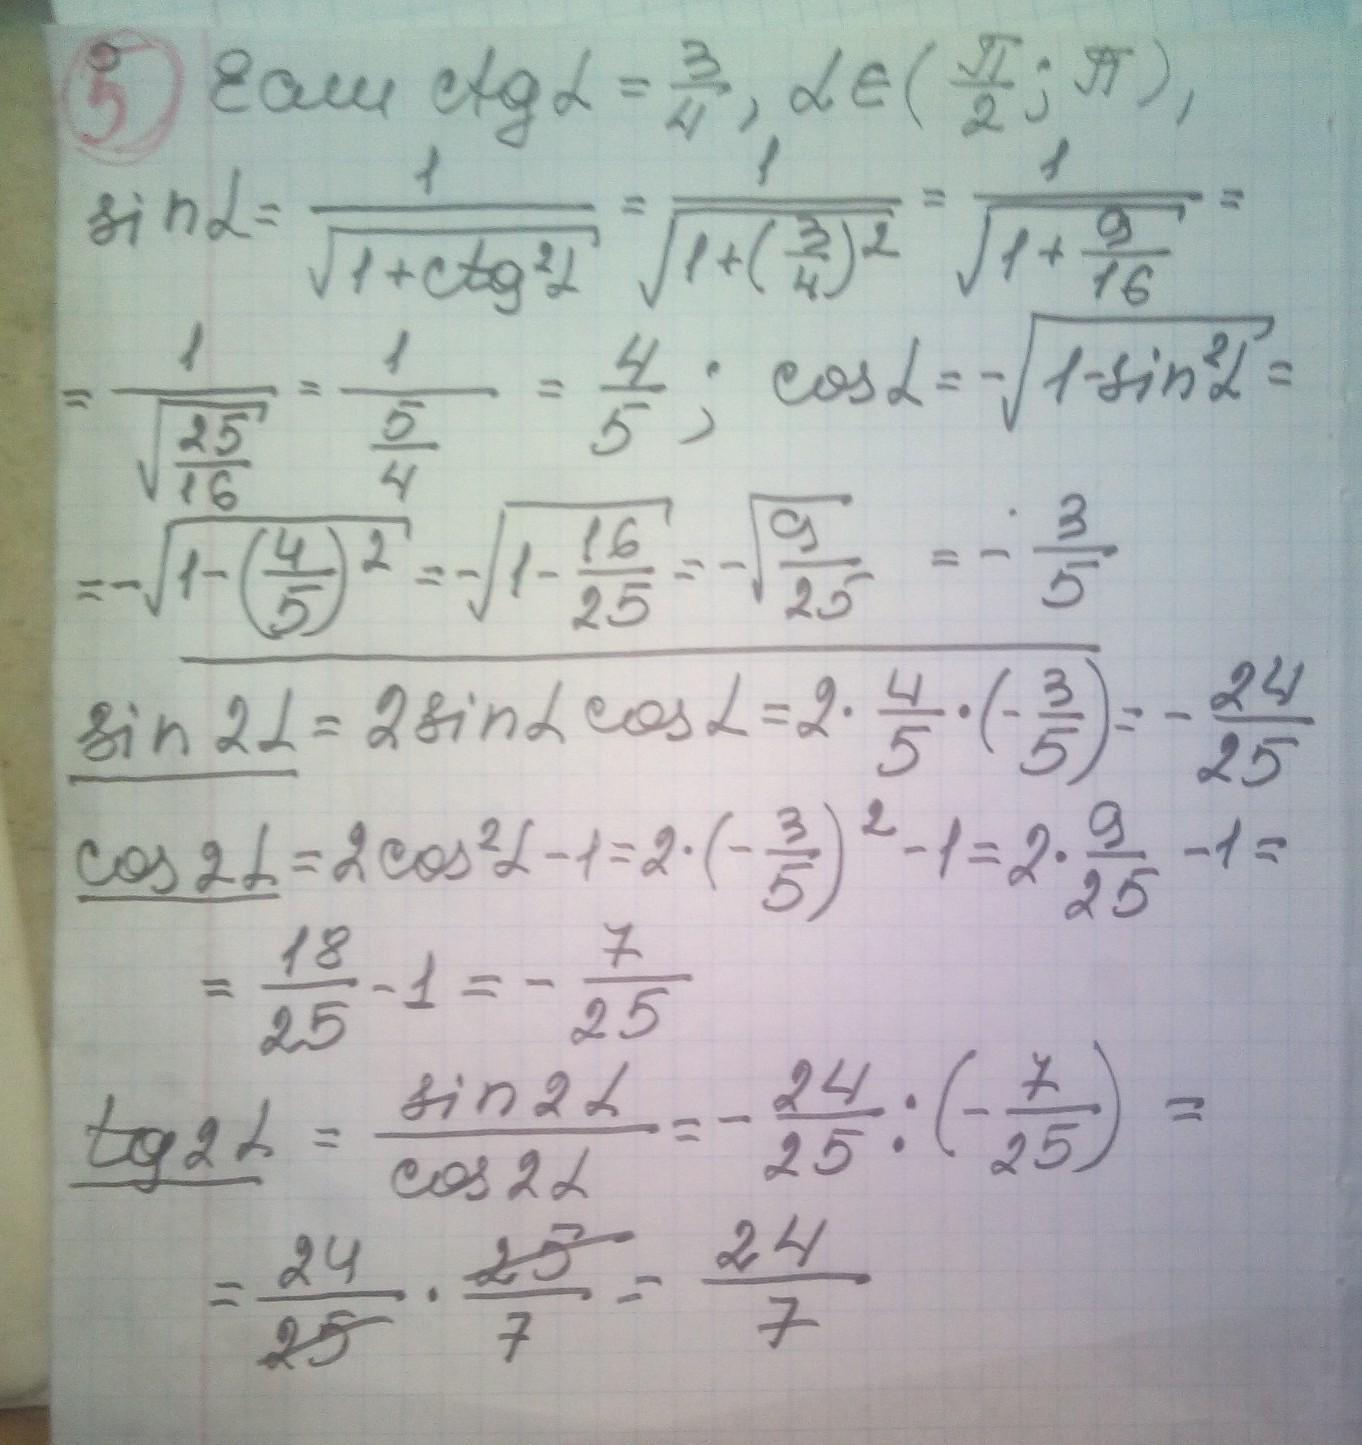 5 Если ctgα = 3/4, α∈(π/2; π),
sinα = 1/√(1+ctg²α) = 1/√(1+(3/4)²) = 1/√(1+9/16) =
= 1/√(25/16) = 1/(5/4) = 4/5; cosα = -√(1-sin²α) =
= -√(1-(4/5)²) = -√(1-16/25) = -√(9/25) = -3/5
sin2α = 2sinα cosα = 2·4/5·(-3/5) = -24/25
cos2α = 2cos²α-1 = 2·(-3/5)²-1 = 2·9/25-1 =
= 18/25-1 = -7/25
tg2α = sin2α/cos2α = -24/25:(-7/25) =
= 24/25·25/7 = 24/7